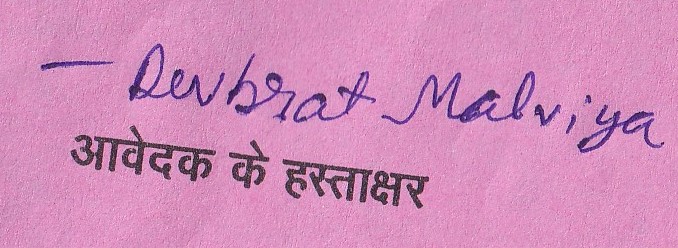 — Devbrat Malviya
आवेदक के हस्ताक्षर